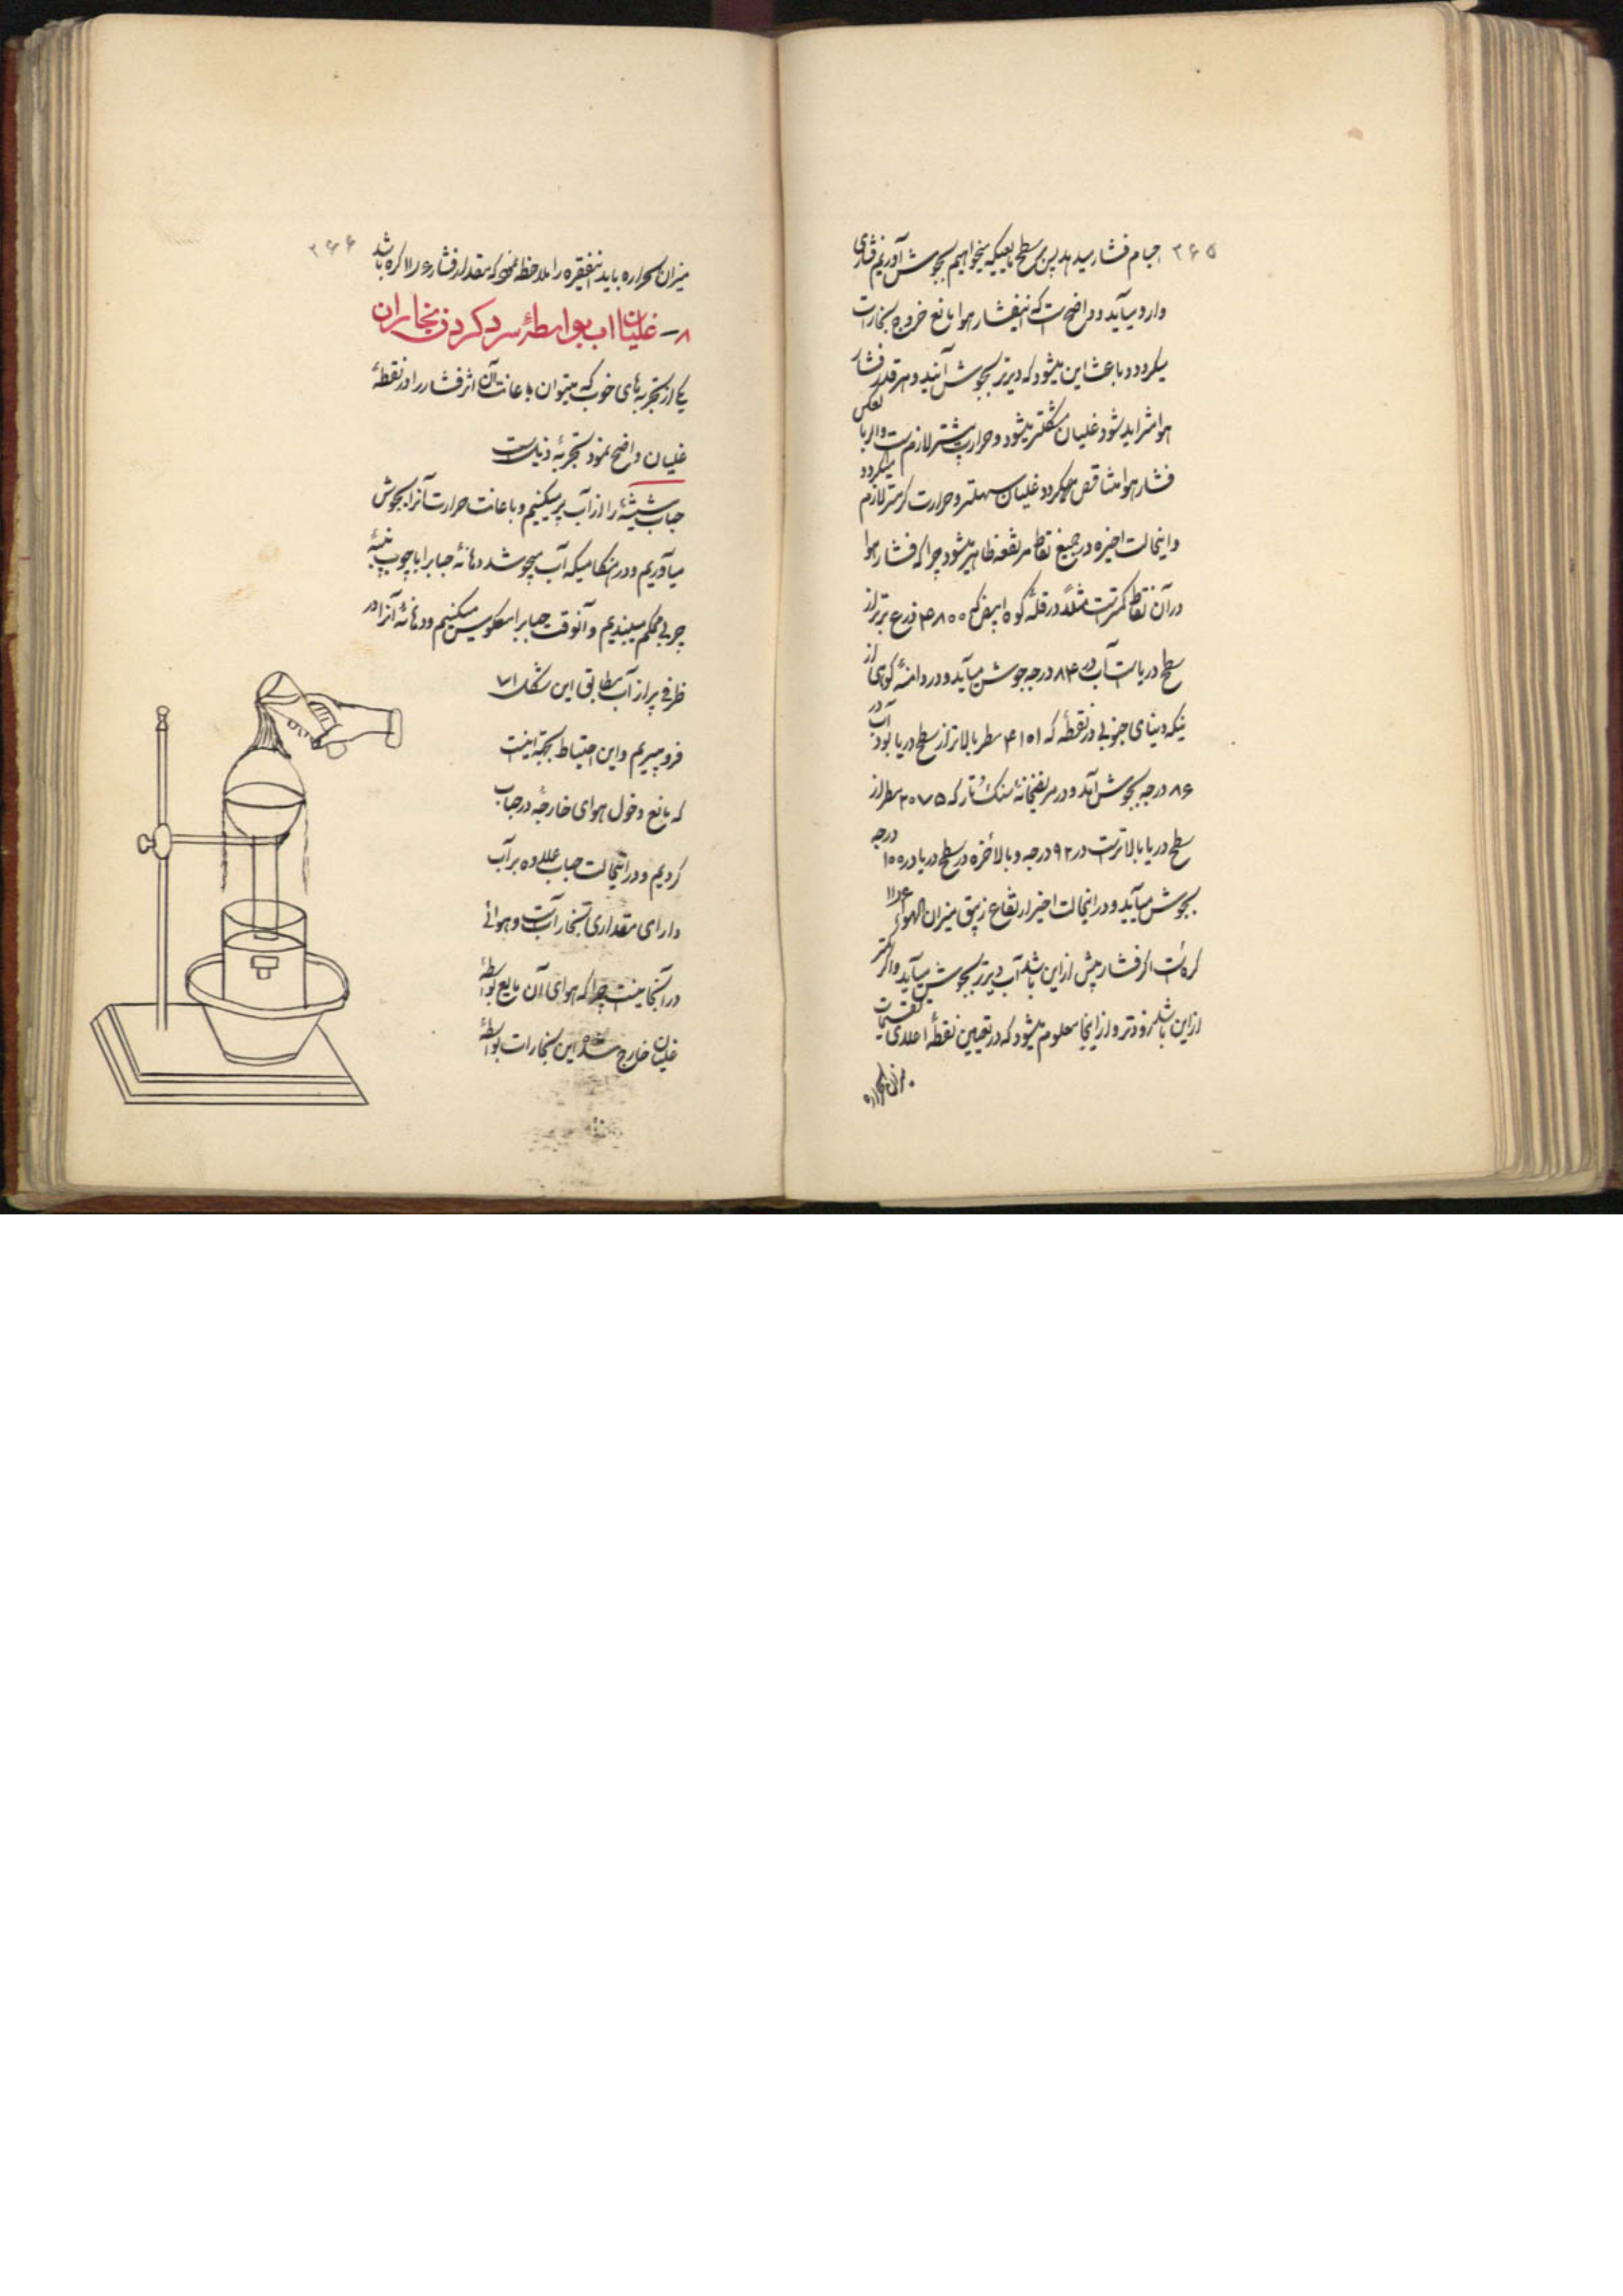 ۲۶۵
اجسام فشار میدهد پس بر سطح مایعیکه میخواهیم بجوش آوریم فشاری
وارد میآید و واضح است که اینفشار هوا مانع خروج بخارات
میگردد و باعث این میشود که دیرتر بجوش آیند و هر قدر فشار
هوا متزاید شود غلیان مشکلتر میشود و حرارت بیشتر لازم است و اگر بالعکس
فشار هوا متناقص گردد غلیان سهلتر و حرارت کمتر لازم میگردد
و اینحالت اخیره در جمیع نقاط مرتفعه ظاهر میشود چرا که فشار هوا
در آن نقاط کمتر است مثلاً در قله کوه ابیض که ۴۸۰۰ ذرع برتر از
سطح دریاست آب در ۸۴ درجه جوش میآید و در دامنهٔ کوهی از
ینکه دنیای جنوبی در نقطهٔ که ۴۱۰۱ مطر بالاتر از سطح دریا بود آب در
۸۶ درجه بجوش آمد و در مریضخانهٔ سنک تار که ۲۰۷۵ مطر از
سطح دریا بالاتر است در ۹۲ درجه و بالاخره در سطح دریا در ۱۰۰ درجه
بجوش میآید و در اینحالت اخیر ارتفاع زیبق میزان الهواء ۱۱٫۶
کره است اگر فشار بیش از این باشد آب دیرتر بجوش میآید و اگر کمتر
از این باشد زودتر و از اینجا معلوم میشود که در تعیین نقطهٔ اعلای تقسیمات
میزان الحراره
۲۶۶
میزان الحراره باید اینفقره را ملاحظه نمود که مقدار فشار ۱۱٫۶ کره باشد
۸ – غلیان آب بواسطهٔ سرد کردن بخار آن
یکی از تجربه‌های خوب که میتوان باعانت آن اثر فشار را در نقطهٔ
غلیان واضح نمود تجربهٔ ذیل است
حباب شیشهٔ را از آب پر میکنیم و باعانت حرارت آنرا بجوش
میآوریم و در هنگامیکه آب میجوشد دهانهٔ حبابرا با چوب پنبهٔ
چربی محکم میبندیم و آنوقت حبابرا معکوس میکنیم و دهانهٔ آنرا در
ظرفی پر از آب مطابق این شکل ۷۱
فرو میبریم و این احتیاط بجهة اینست
که مانع دخول هوای خارجه در حباب
گردیم و در اینحالت حباب علاوه بر آب
دارای مقداری بخار آبست و هوائی
در آنجا نیست چرا که هوای آن مایع بواسطهٔ
غلیان خارج شده این بخارات بواسطهٔ